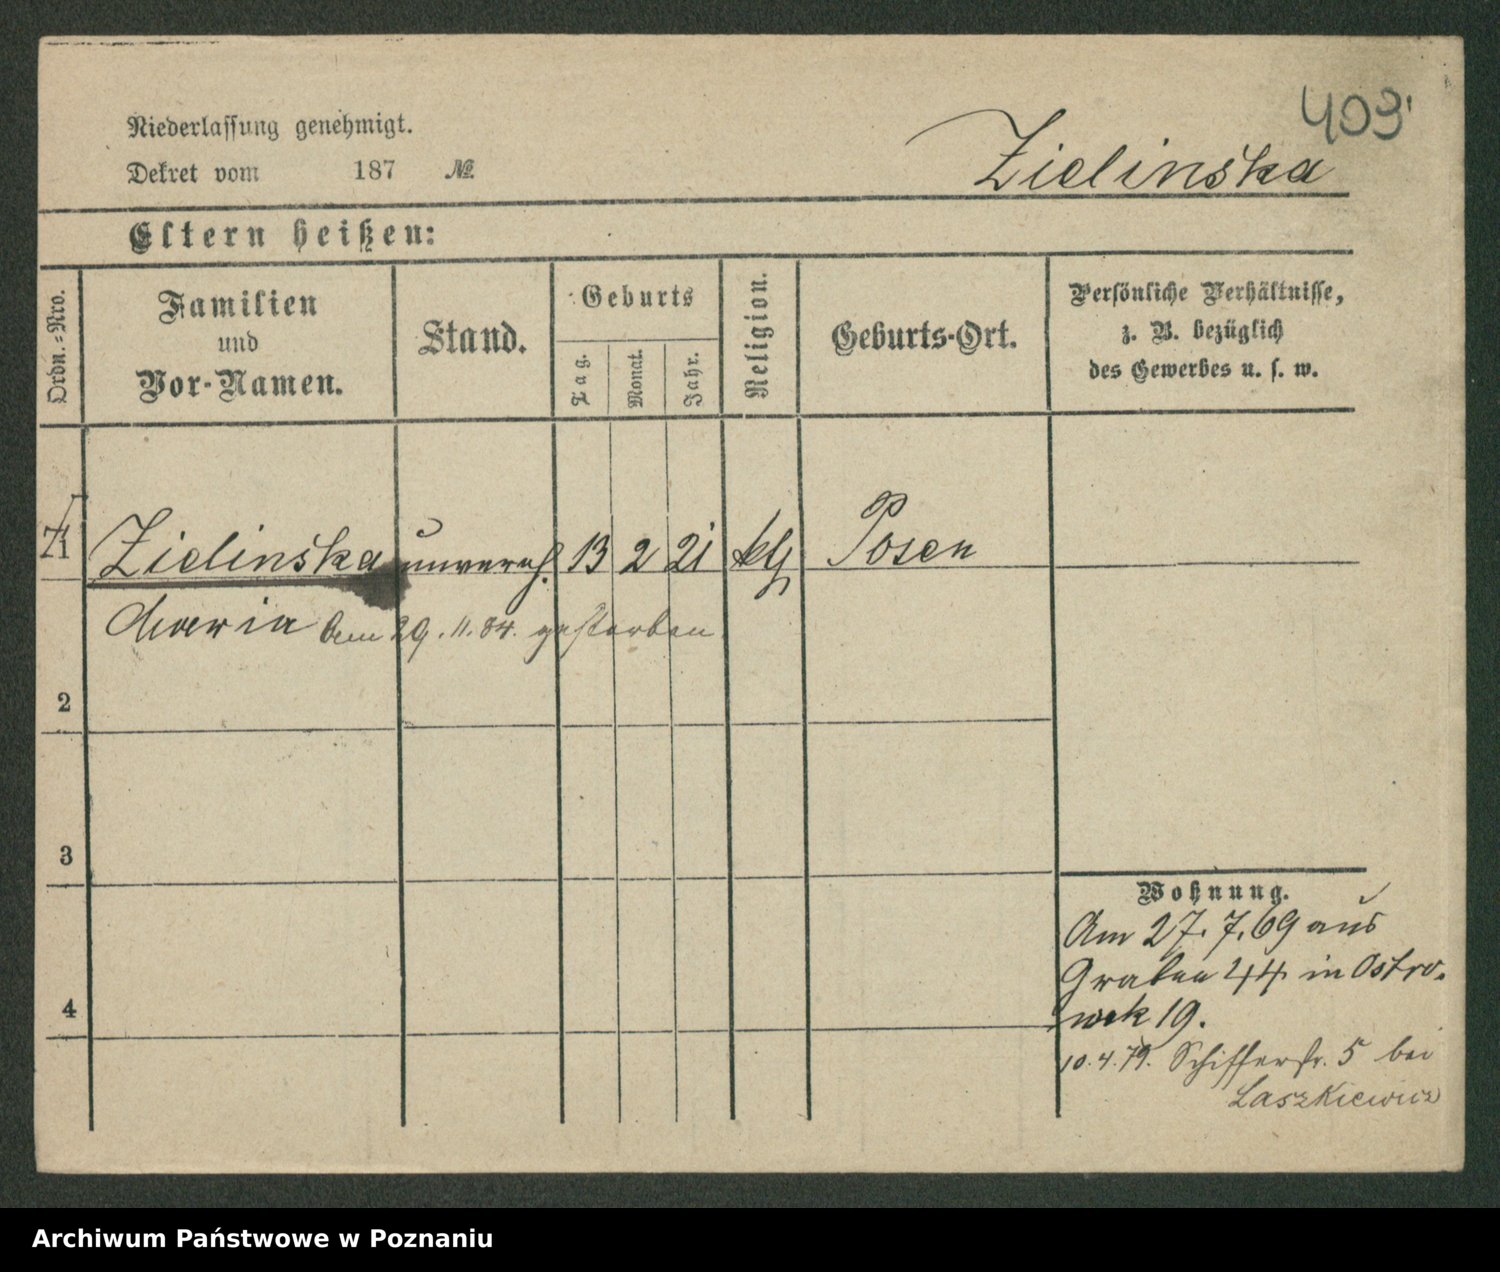 403
Niederlassung genehmigt.
Dekret vom 187 №
Zielinska
Eltern heißen:
Ordn.-Nro.
Familien
und
Vor-Namen.
Stand.
Geburts
Tag.
Monat.
Jahr.
Religion.
Geburts-Ort.
Persönliche Verhältnisse,
z. B. bezüglich
des Gewerbes u. s. w.
1 Zielinska unvereh. 13 2 21 kth Posen
Maria Am 29.11.84. gestorben
2
3
4
Wohnung.
Am 27.7.69 aus
Graben 44 in Ostro-
wek 19.
10.4.79. Schifferstr. 5 bei
Laszkiewicz
Archiwum Państwowe w Poznaniu